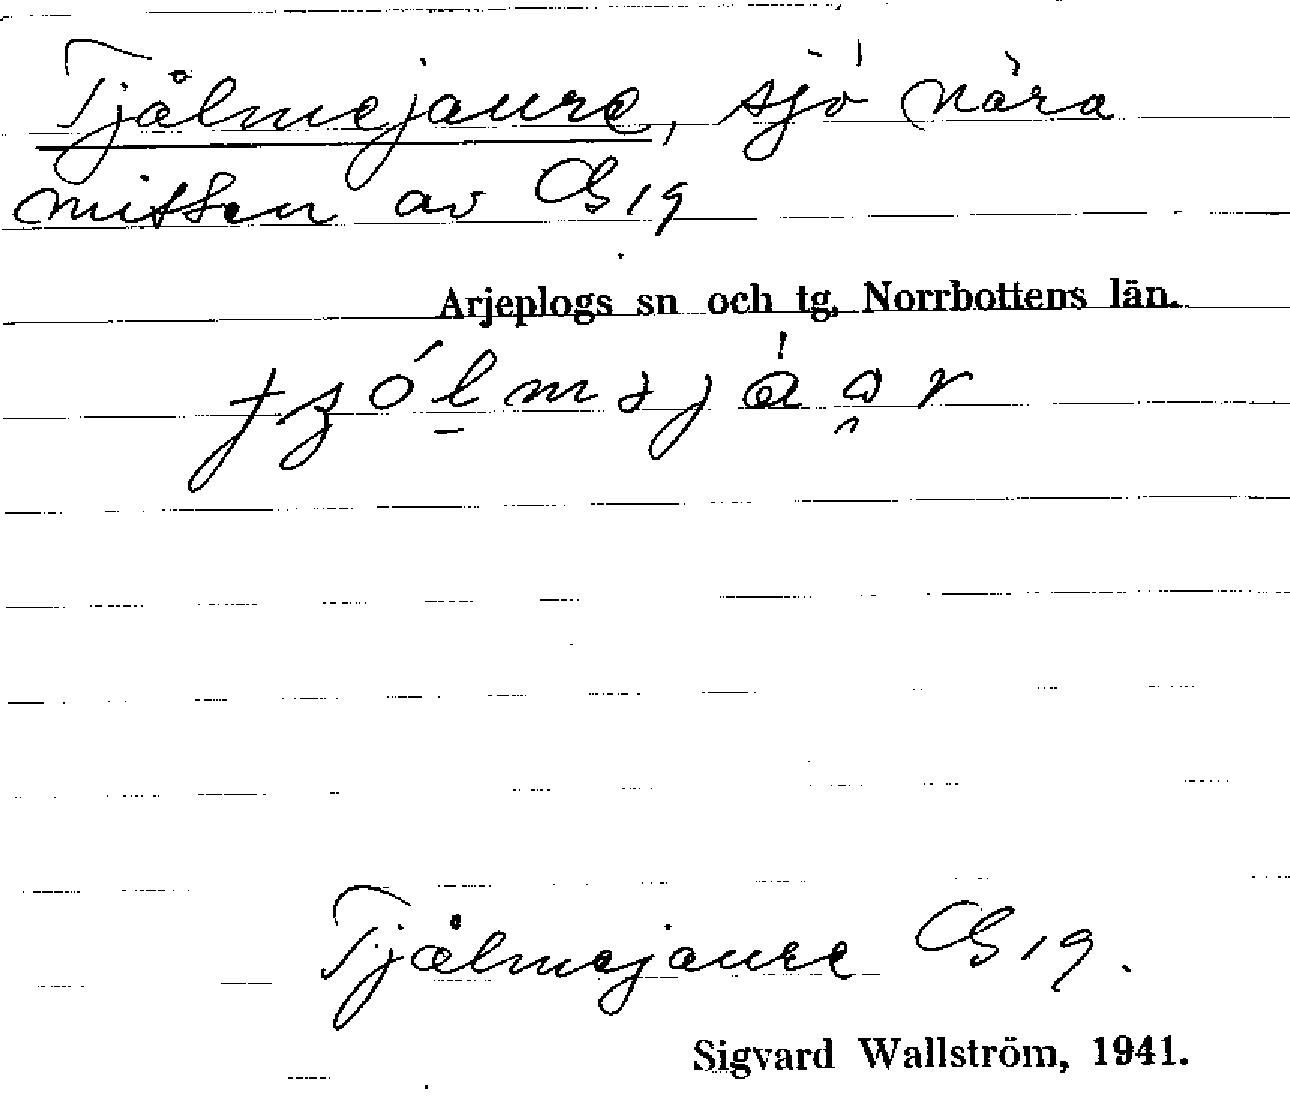 Tjålmejaure, sjö nära
mitten av CG 19
Arjeplogs sn och tg, Norrbottens län.
Tjålmejaure CG 19.
Sigvard Wallström, 1941.